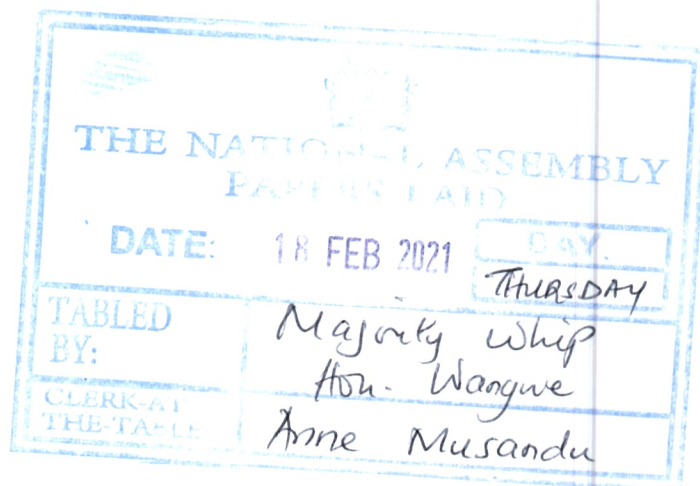 THE NATIONAL ASSEMBLY
PAPERS LAID
DATE: 18 FEB 2021 DAY.
THURSDAY
TABLED BY: Majority Whip
Hon. Wangwe
CLERK-AT THE-TABLE Anne Musandu